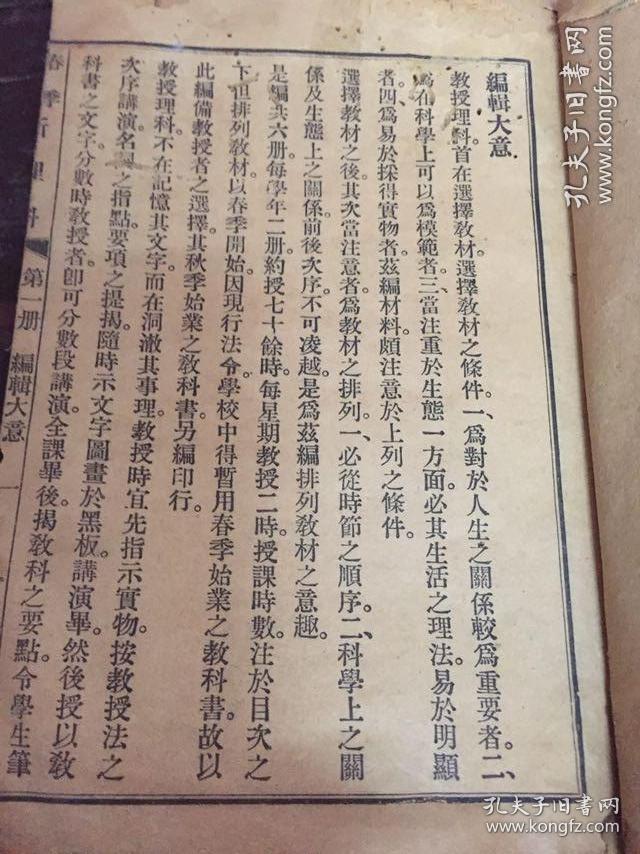 編輯大意
教授理科。首在選擇敎材。選擇敎材之條件。一、爲對於人生之關係較爲重要者。二、
爲在科學上可以爲模範者。三、當注重於生態一方面。必其生活之理法。易於明顯
者。四、爲易於採得實物者。茲編材料。頗注意於上列之條件。
選擇敎材之後。其次當注意者。爲教材之排列。一、必從時節之順序。二、科學上之關
係及生態上之關係。前後次序。不可凌越。是爲茲編排列敎材之意趣。
是編共六册。每學年二册。約授七十餘時。每星期教授二時。授課時數。注於目次之
下。但排列敎材。以春季開始。因現行法令。學校中得暫用春季始業之教科書。故以
此編備敎授者之選擇。其秋季始業之敎科書。另編印行。
敎授理科。不在記憶其文字。而在洞澈其事理。敎授時宜先指示實物。按教授法之
次序講演。名詞之指點。要項之提揭。隨時示文字圖畫於黑板。講演畢。然後授以敎
科書之文字。分數時敎授者。卽可分數段講演。全課畢後。揭敎科之要點。令學生筆
春季新理科 第一册 編輯大意
孔夫子旧书网
www.kongfz.com
孔夫子旧书网
www.kongfz.com